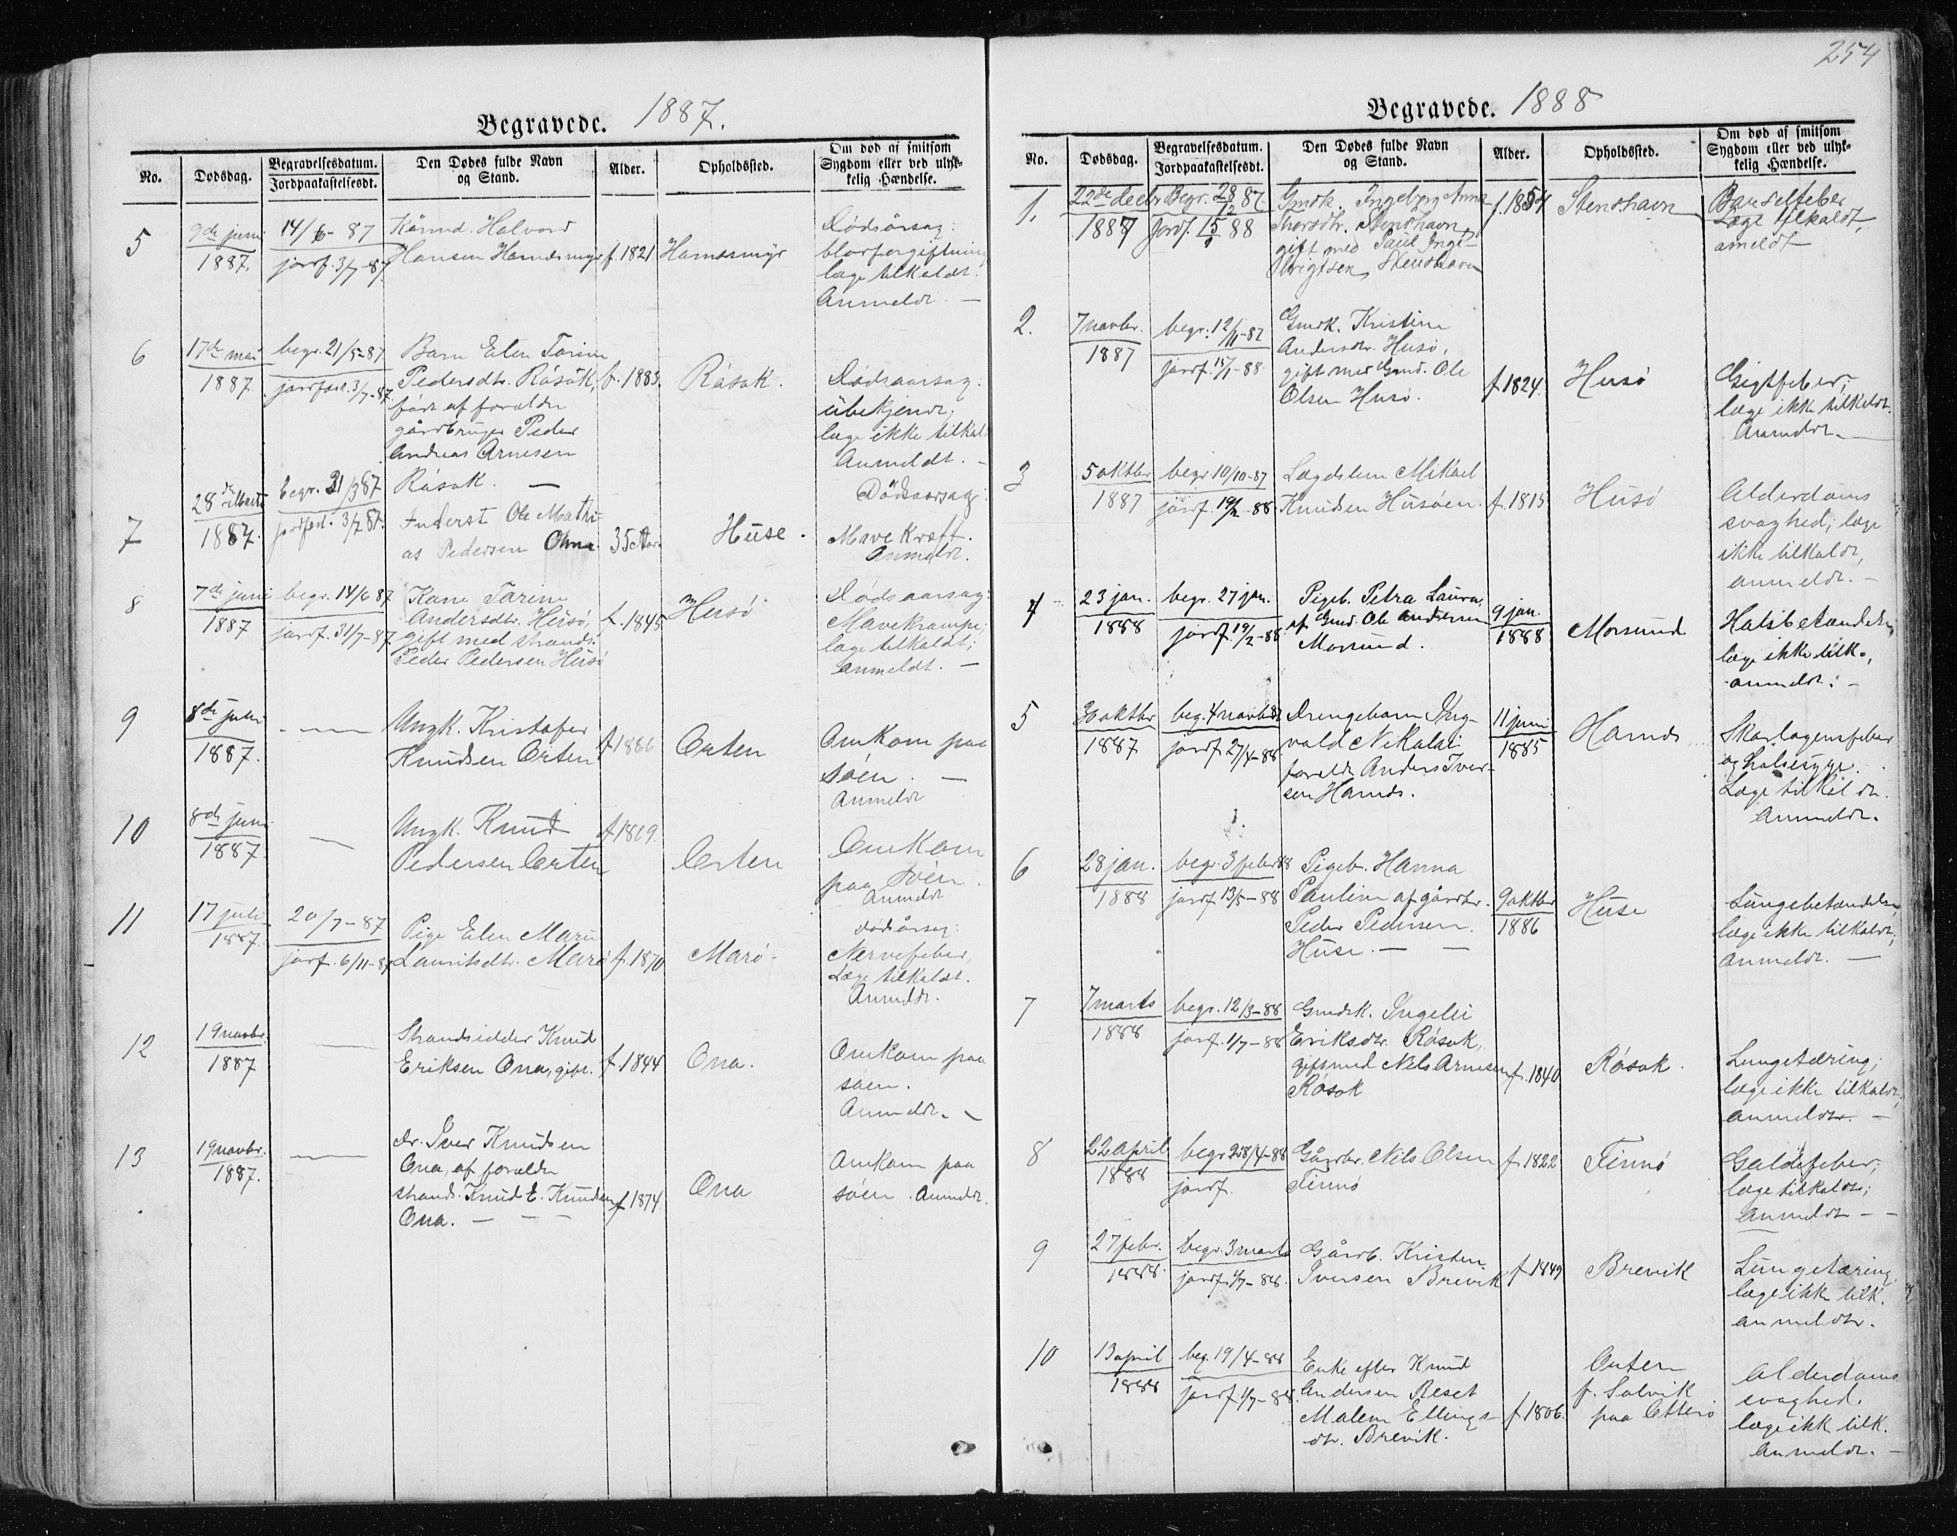 254
Begravede. 1887.
No.
Dødsdag.
Begravelsesdatum.
Jordpaakastelsesdt.
Den Dødes fulde Navn
og Stand.
Alder.
Opholdssted.
Om død af smitsom
Sygdom eller ved ulyk-
kelig Hændelse.
5
9de juni
1887.
14/6-87
jordf. 3/7-87.
Kårmd. Halvord
Hansen Harnæsmyr
f. 1821
Harnæsmyr
Dødsårsag:
blodforgiftning
læge tilkaldt.
Anmeldt. —
6
17de mai
1887.
begr. 21/5-87
jordfæst. 3/7-87.
Barn Elen Tarine
Pedersdtr. Råsåk,
født af forældre
gårdbruger Peder
Andreas Arnesen
Råsok. —
f. 1885.
Råsok.
Dødsaarsag:
übekjendt;
læge ikke tilkaldt
Anmeldt. —
7
28de
1887.
begr. 31/3 87
jordfæst. 3/7 87.
Inderst Ole Mathi-
as Pedersen Ohna.
35 Aar
Huse.
Dødsaarsag:
Mave Kræft.
Anmeldt.
8
7de juni
1887
begr. 14/6 87
jordf. 31/7-87
Kone Tarine
Andersdtr. Husø,
gift med strands.
Peder Pedersen Husø
f. 1845
Husø
Dødsaarsag:
Mavekrampe;
læge tilkaldt;
Anmeldt. —
9
8de juni
1887.
—
Ungk. Kristofer
Knudsen Orten
f 1886
Orten
Omkom paa
søen. —
Anmeldt
10
8de juni
1887.
—
Ungk. Knud
Pedersen Orten
f 1869.
Orten
Omkom
paa søen.
Anmeldt
11
17 juli
1887.
20/7-87
jordf. 6/11-87
Pige Elen Marie
Lauritsdtr. Marø
f. 1870
Marø.
dødsårsag:
Nervefeber,
Læge tilkaldt.
Anmeldt.
12
19 novbr.
1887
—
Strandsidder Knud
Eriksen Ona, gift.
f 1844
Ona.
Omkom paa
søen.
Anmeldt. —
13
19 novbr.
1887.
—
dr. Iver Knudsen
Ona, af forældre
strands. Knud E. Knudsen
Ona. — — —
f 1874
Ona
Omkom paa
søen. Anmeldt.
Begravede. 1888
No.
Dødsdag.
Begravelsesdatum.
Jordpaakastelsesdt.
Den Dødes fulde Navn
og Stand.
Alder.
Opholdssted.
Om død af smitsom
Sygdom eller ved ulyk-
kelig Hændelse.
1.
22de decbr
1887
Begr. 28/12 87.
Jordf. 15/1 88
Gmdk. Ingeborg Anna
Thorsdtr. Stenshavn,
gift med Paul Inge-
brigtsen, Stenshavn
f. 1854
Stenshavn
Barselfeber
Læge tilkaldt,
anmeldt
2.
7 novbr.
1887
begr. 12/11-87
jordf. 15/1-88
Gmdk. Kristine
Andersdtr. Husø,
gift med Gmd. Ole
Olsen Husø.
f 1824.
Husø
Gigtfeber;
læge ikke tilkaldt.
Anmeldt. —
3
5 oktbr
1887
begr. 10/10-87
jordf. 19/2-88
Lægdslem Mikael
Knudsen Husøen.
f. 1815
Husø
Alderdoms
svaghed; læge
ikke tilkaldt,
anmeldt. —
4
23 jan.
1888
begr. 27 jan.
jordf. 19/2-88.
Pigeb. Petra Laura,
af Gmd. Ole Andersen
Morsund.
9 jan.
1888
Morsund
Halsbetændelse
læge ikke tilk.,
anmeldt. —
5
30 oktbr
1887
beg. 4 novb 87
jordf. 27/4-88
Drengebarn Ing-
vald Nikolai
foreldr. Anders Iver-
sen Harnds.
11 juni
1885
Harnds
Skarlagensfeber
og halssyge.
Læge tilkaldt.
Anmeldt.
6
28 jan.
1888
begr. 3 febr 88
jordf 13/5-88
Pigeb. Hanna
Pauline af gårdbr.
Peder Pedersen.
Huse. — —
9 oktbr
1886
Huse
Lungebetændelse,
læge ikke tilkaldt,
Anmeldt. —
7
7 marts
1888
begr. 12/3-88
jordf. 1/7-88
Gmdsk. Ingeli
Eriksdtr. Røsok,
gift med Nils Arnesen
Røsok
f. 1840
Røsok.
Lungetæring;
læge ikke tilkaldt,
anmeldt. —
8
22 april
1888
begr. 28/4-88
jordf.
Gårdbr. Nils Olsen
Finnø
f 1822
Finnø
Galdefeber;
læge tilkaldt;
Anmeldt — —
9
27 febr.
1888.
begr. 3 marts
jordf. 1/7-88.
Gårdb. Kristen
Iversen Brevik
f 1849
Brevik
Lungetæring
læge ikke tilk.
anmeldt.
10
13 april
1888
beg. 19/4-88
jordf. 1/7-88.
Enke efter Knud
Andersen Reset
Malene Ellings-
dtr. Brevik.
f 1806.
Outen
f. Solvik
paa Otterø
Alderdoms
svaghed.
læge ikk tilk.
Anmeldt. —